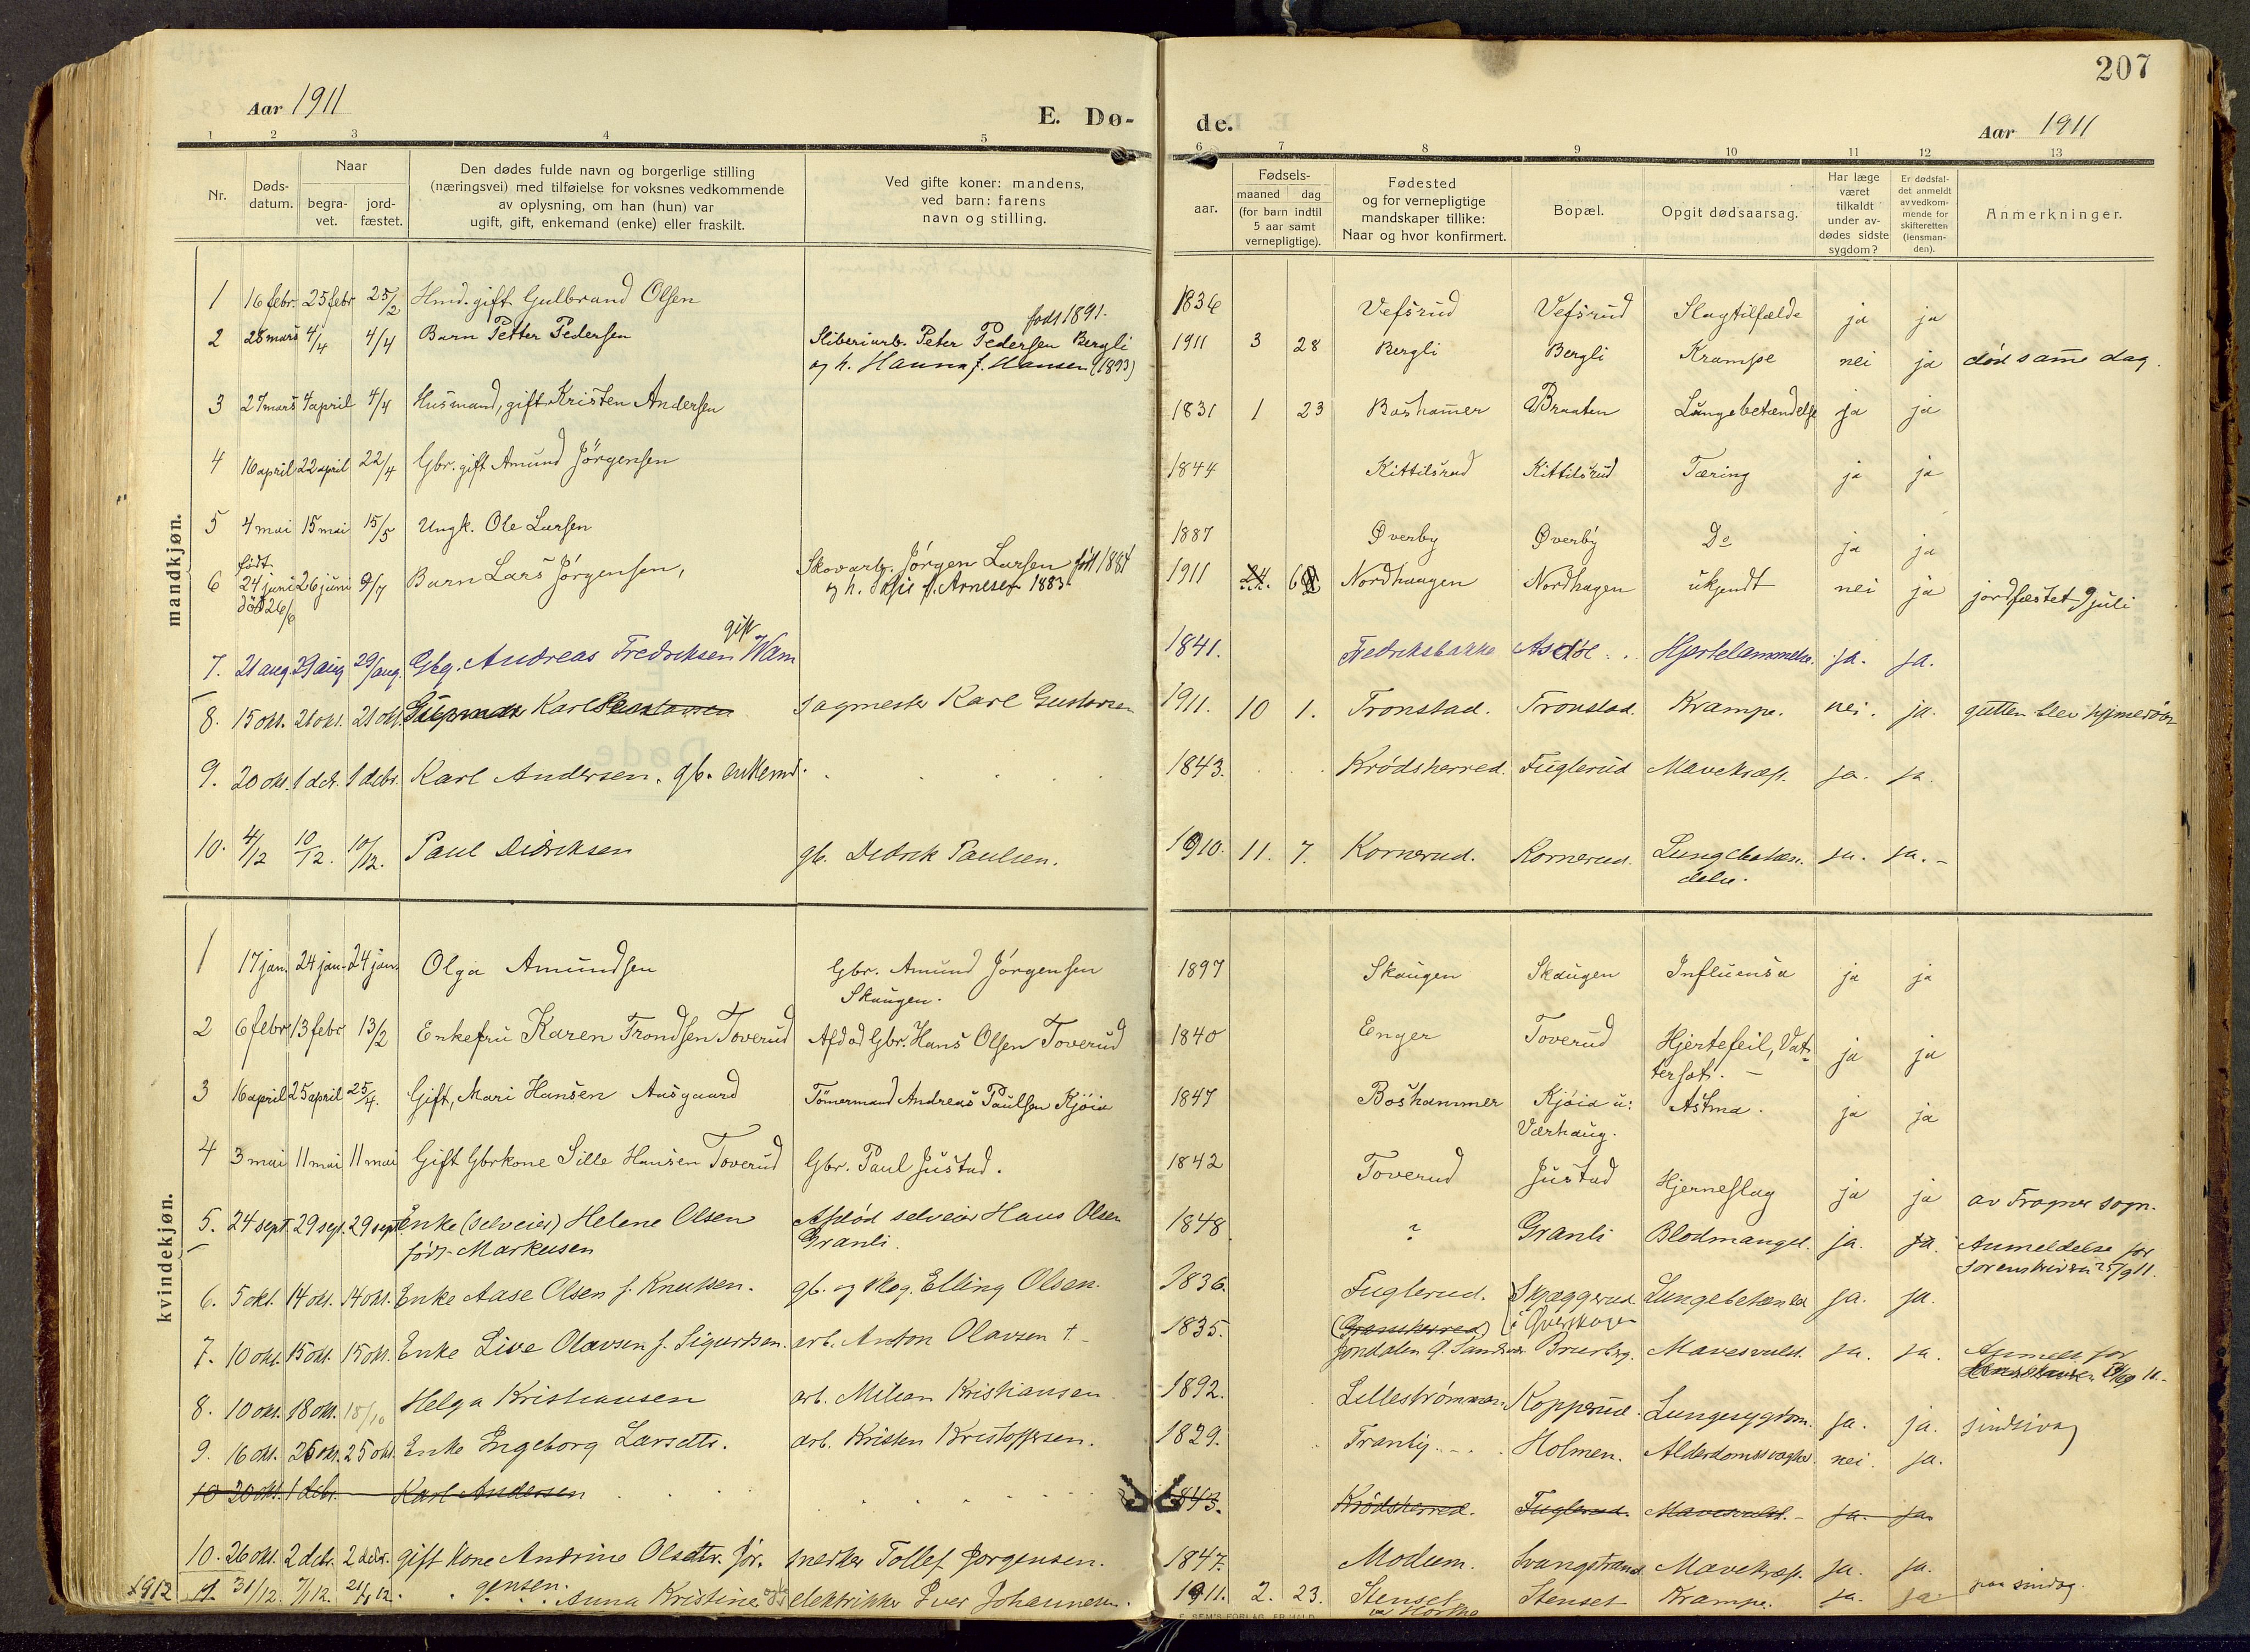 207
Aar 1911
E. Dø- de.
Aar 1911
1 2 3 4 5 6 7 8 9 10 11 12 13
Nr.
Døds-
datum.
Naar
begra-
vet.
jord-
fæstet.
Den dødes fulde navn og borgerlige stilling
(næringsvei) med tilføielse for voksnes vedkommende
av oplysning, om han (hun) var
ugift, gift, enkemand (enke) eller fraskilt.
Ved gifte koner: mandens,
ved barn: farens
navn og stilling.
aar.
Fødsels-
maaned dag
(for barn indtil
5 aar samt
vernepligtige).
Fødested
og for vernepligtige
mandskaper tillike:
Naar og hvor konfirmert.
Bopæl.
Opgit dødsaarsag.
Har læge
været
tilkaldt
under av-
dødes sidste
sygdom?
Er dødsfal-
det anmeldt
av vedkom-
mende for
skifteretten
(lensman-
den).
Anmerkninger.
mandkjøn.
1 16 febr. 25 febr 25/2 Hmd. gift Gulbrand Olsen 1836 Vefsrud Vefsrud Slagtilfælde ja ja
født 1891.
2 28 mars 4/4 4/4 Barn Petter Pedersen Sliberiarb. Peter Pedersen Bergli 1911 3 28 Bergli Bergli Krampe nei ja död samme dag.
og h. Hanna f. Hansen (1893)
3 27 mars 4 april 4/4 Husmand, gift Kristen Andersen 1831 1 23 Boshammer Braaten Lungebetændelse ja ja
4 16 april 22 april 22/4 Gbr. gift Amund Jörgensen 1844 Kittilsrud Kittilsrud Tæring ja ja
5 4 mai 15 mai 15/5 Ungk. Ole Larsen 1887 Øverby Øverby Do ja ja
født
6 24 juni 26 juni 9/7 Barn Lars Jørgensen, Skovarb. Jørgen Larsen født 1884 1911 24. 6 Nordhaugen Nordhagen ukjendt nei ja jordfæstet 9 juli
död 26/6 og h. f. Arnesen 1883.
gift
7. 21 aug. 29 aug 29/aug. Gbg. Andreas Fredriksen Wam 1841. Fredriksbakke Hjertelammelse. ja. ja.
8. 15 okt. 21 okt. 21 okt. Karl Gustavsen sagmester Karl Gustavsen 1911. 10 1. Tronstad. Tronstad. Krampe. nei. ja. gutten blev hjemedøbt
9. 20 okt. 1 dcb. 1 dcbr. Karl Andersen. gb. enkemd. 1843. Krødsherred. Fuglerud Mavekræft. ja. ja.
10. 4/12 10/12. 10/12. Paul Didriksen gb. Didrik Paulsen. 1910. 11. 7. Kornerud. Kornerud. Lungebetæn- ja. ja. -
delse.
kvindekjøn.
1 17 jan. 24 jan. 24 jan. Olga Amundsen Gbr. Amund Jørgensen 1897 Skaugen Skaugen Influensa ja ja
Skaugen.
2 6 febr 13 febr 13/2 Enkefru Karen Trondsen Toverud Afdød Gbr. Hans Olsen Toverud 1840 Enger Toverud Hjertefeil, Vat- ja ja
tersot. -
3 16 april 25 april 25/4. Gift, Mari Hansen Aasgaard Tömermand Andreas Paulsen Kjöia 1847 Boshammer Kjöia u: Astma. ja ja
Værhaug.
4 3 mai 11 mai 11 mai Gift Gbrkone Sille Hansen Toverud Gbr. Paul Justad. 1842 Toverud Justad Hjerneslag ja ja av Fragner sogn.
5. 24 sept. 29 sep. 29 sept. Enke (selveier) Helene Olsen Afdød selveier Hans Olsen 1848 ? Granli Blodmangel. ja. ja. Anmeldelse for
født Markusen Granli. sorenskriver 25/9 11.
6. 5 okt. 14 okt. 14 okt. Enke Aase Olsen f. Knutsen. gb. og skog. Elling Olsen. 1836. Fuglerud. Skjæggerud Lungebetændel ja. ja.
(Gransherred)
7. 10 okt. 15 okt. 15 okt. Enke Live Olavsen f. Sigurdsen. arb. Anton Olavsen † 1835. Jondalen Bruberg. Mavesvulst. ja. ja. Anmeldt for
8. 10 okt. 18 okt. 18/10 Helga Kristiansen arb. Milian Kristiansen. 1892. Lillestrømmen. Kopperud. Lungesygdom. ja. ja.
9. 16 okt. 25 okt. 25 okt. Enke Ingeborg Larsdtr. arb. Kristen Kristoffersen. 1829. Tranby. Holmen. Alderdomssvaghet. nei. ja.
10 20 okt. 1 dcbr. Karl Andersen 1843. Krødsherred. Fuglerud. Mavesvulst. - ja. ja.
10. 26 okt. 2 dcbr. 2 dcbr. gift kone Andrine Olsdtr. Jör- snedker Tollef Jorgensen. 1847. Modum. Svangstrand Mavekræft. ja. ja.
gensen.
1912 11 31/12 7/12. Anna Kristine elektriker Iver Johannesen. 1911. 2. 23. Stenset Stenset Krampe. ja. ja.
E. SEM'S FORLAG, FR.HALD